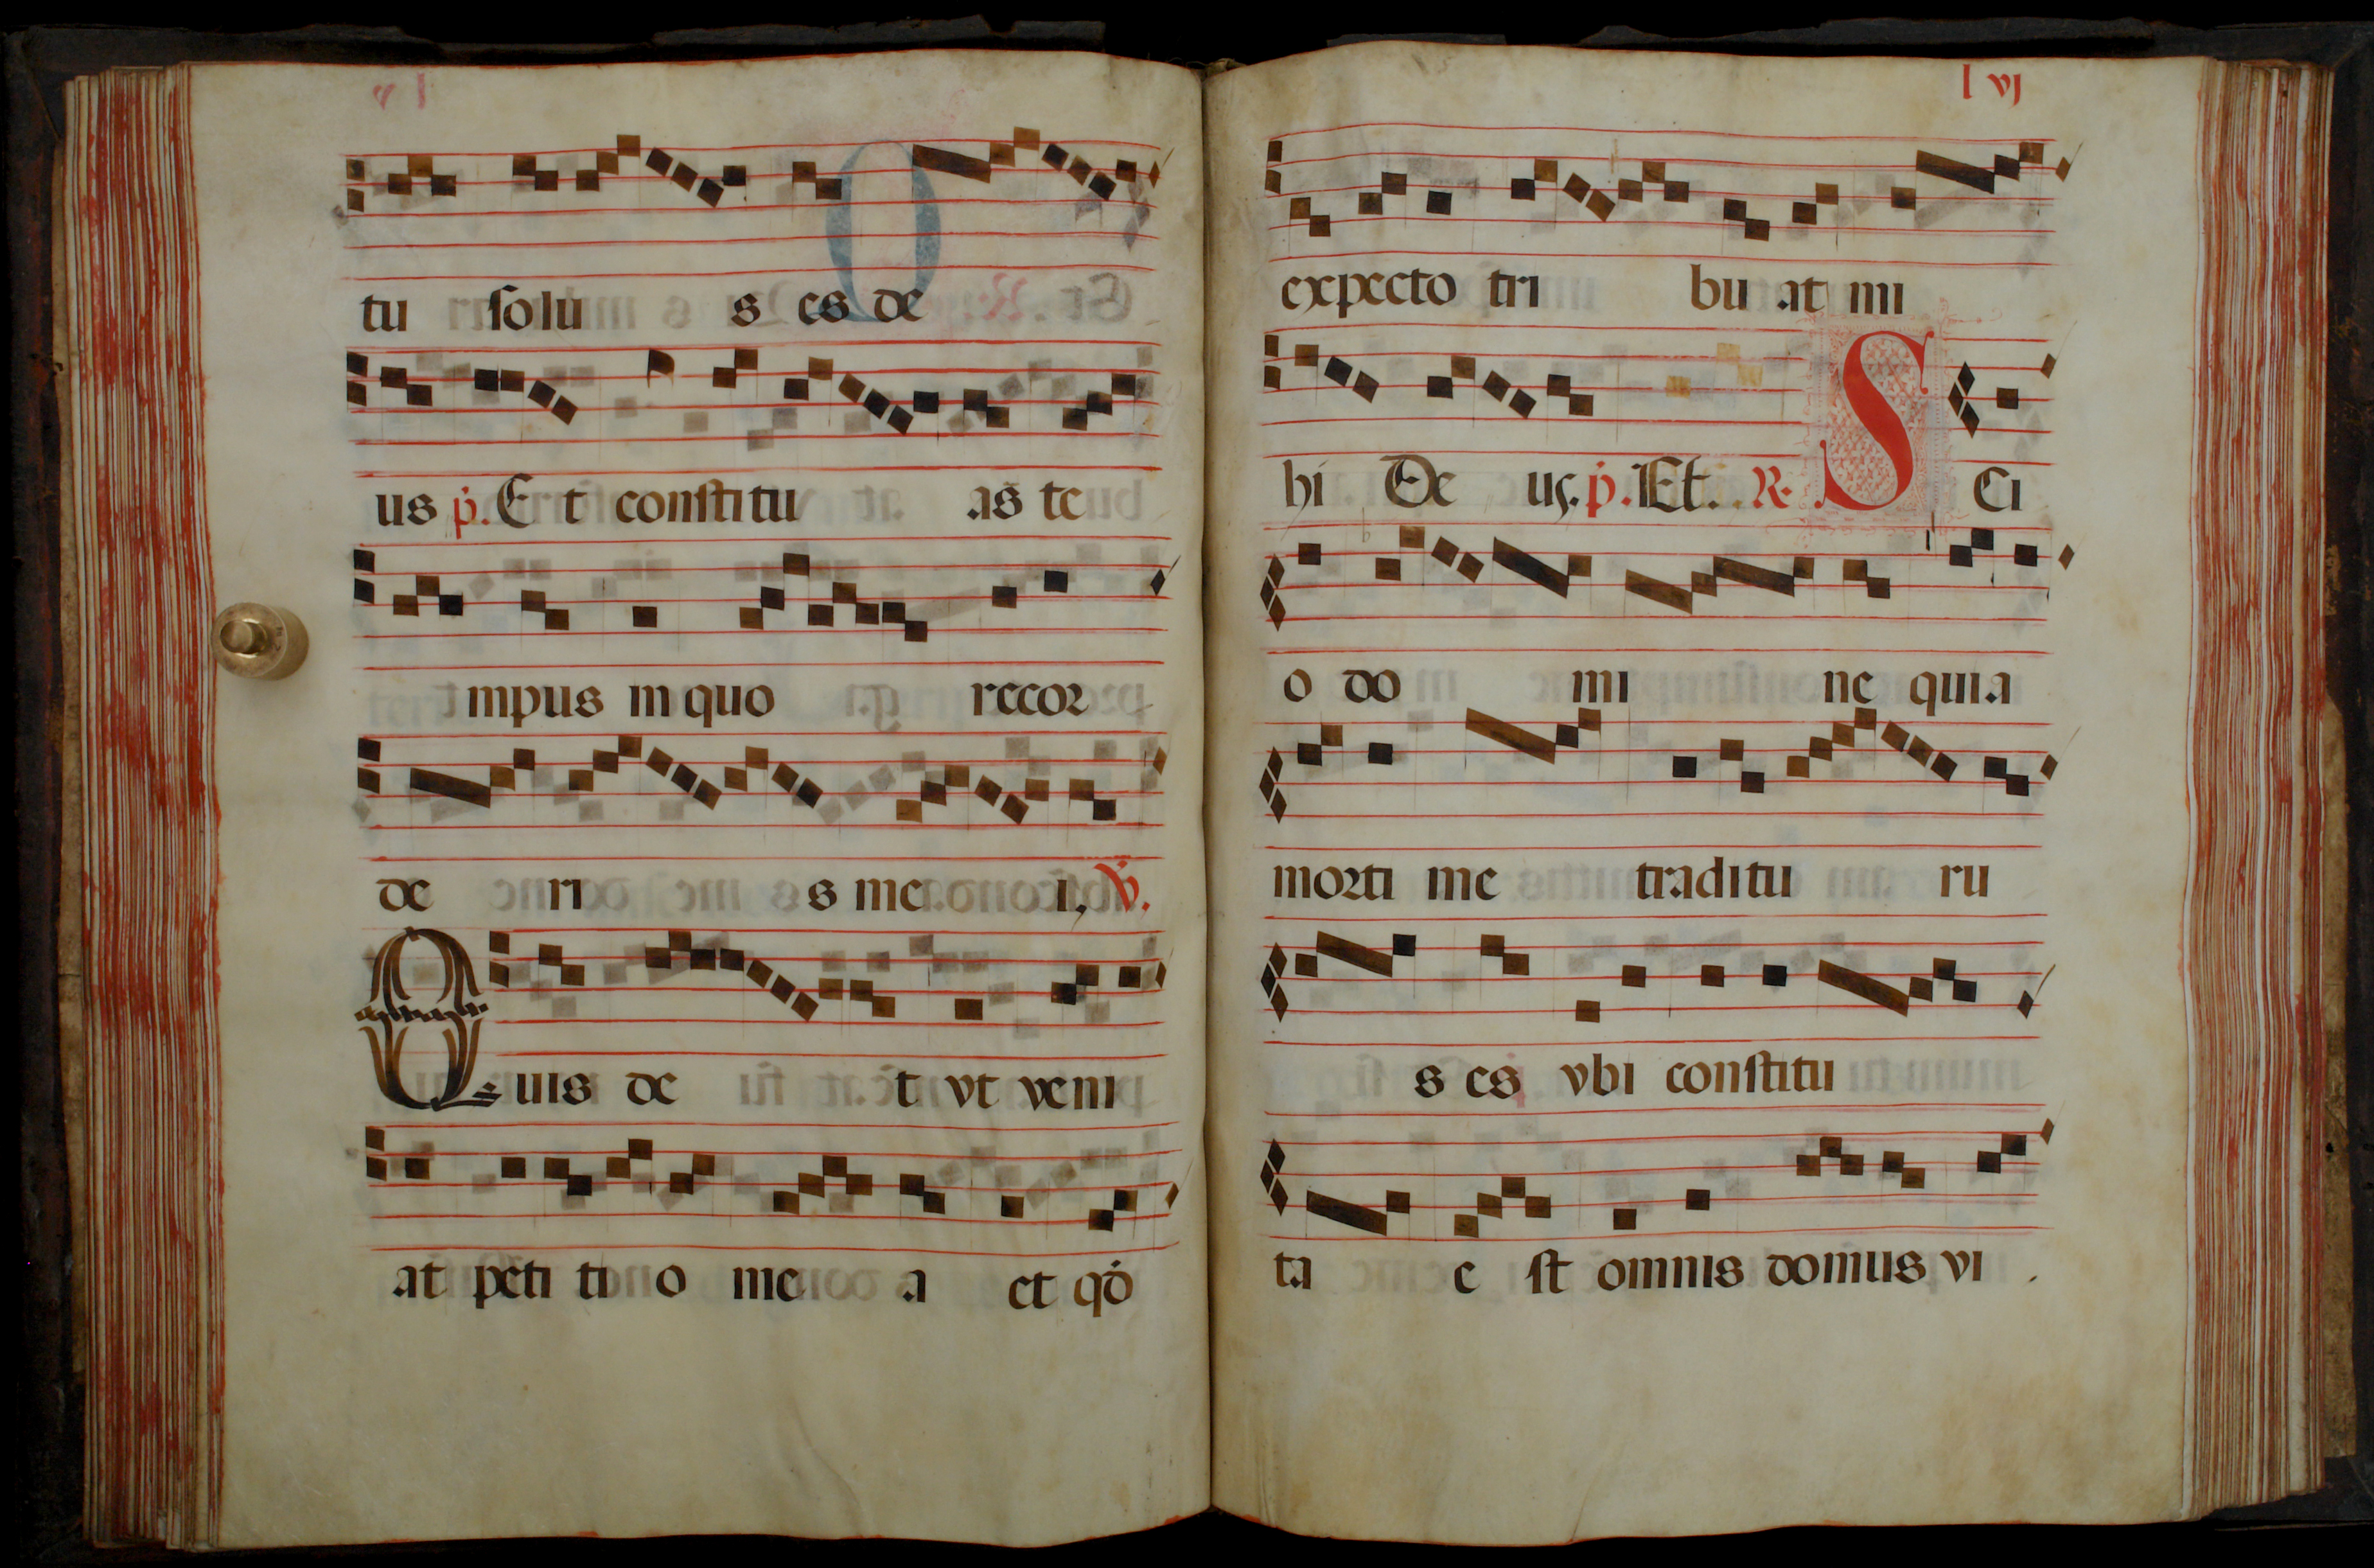 tu solu s es de
us p. Et constitu as te
mpus in quo recor
de ri s mei, V.
Quis de t vt veni
at peti ti o me a et qđ
l vj
expecto tri bu at mi
hi De us. p. Et. R. Sci
o do mi ne quia
morti me traditu ru
s es vbi constitu
ta e st omnis domus vi